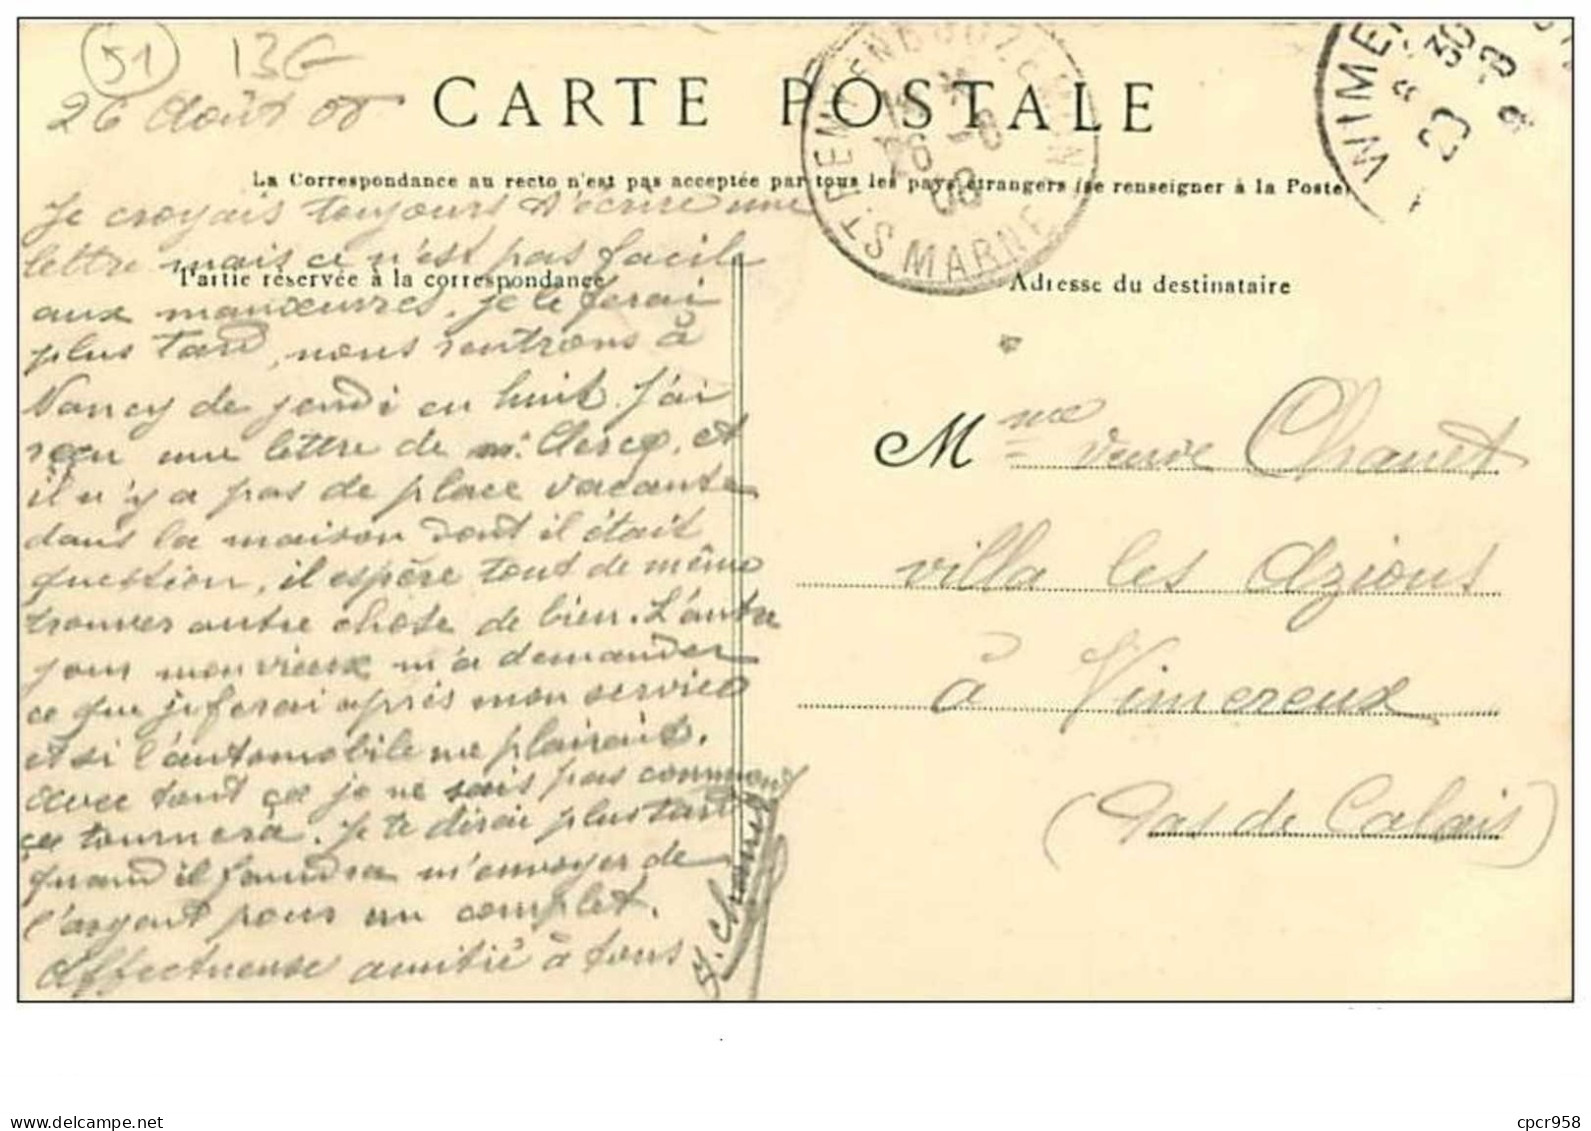 51
13G
26 Août 08
CARTE POSTALE
La Correspondance au recto n'est pas acceptée par tous les pays étrangers (se renseigner à la Poste)
Je croyais toujours t'écrire une
lettre mais ce n'est pas facile
Partie réservée à la correspondance
aux manœuvres. je le ferai
plus tard, nous rentrons à
Nancy de jeudi en huit. J'ai
reçu une lettre de mr Clercq, et
il n'y a pas de place vacante
dans la maison dont il était
question, il espère tout de même
trouver autre chose de bien. L'autre
jour mon vieux m'a demander
ce que je ferai après mon service
et si l'automobile me plairait.
avec tout ça je ne sais pas comment
ça tournera. Je te dirai plus tard
quand il faudra m'envoyer de
l'argent pour un complet.
affectueuse amitié à tous
Adresse du destinataire
Mme veuve Chanet
villa les Azions
à Vimereux
(Pas de Calais)
MARNE
26 -8
08
WIME
30
29 -8
delcampe.net
cpcr958